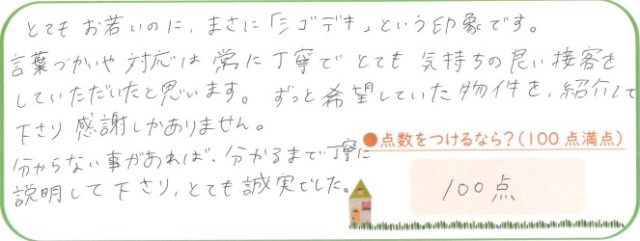 とてもお若いのに、まさに「シゴデキ」という印象です。
言葉づかいや対応は常に丁寧でとても気持ちの良い接客を
していただいたと思います。ずっと希望していた物件を、紹介して
下さり感謝しかありません。
分からない事があれば、分かるまで丁寧に
説明して下さり、とても誠実でした。
●点数をつけるなら？(100点満点)
100点